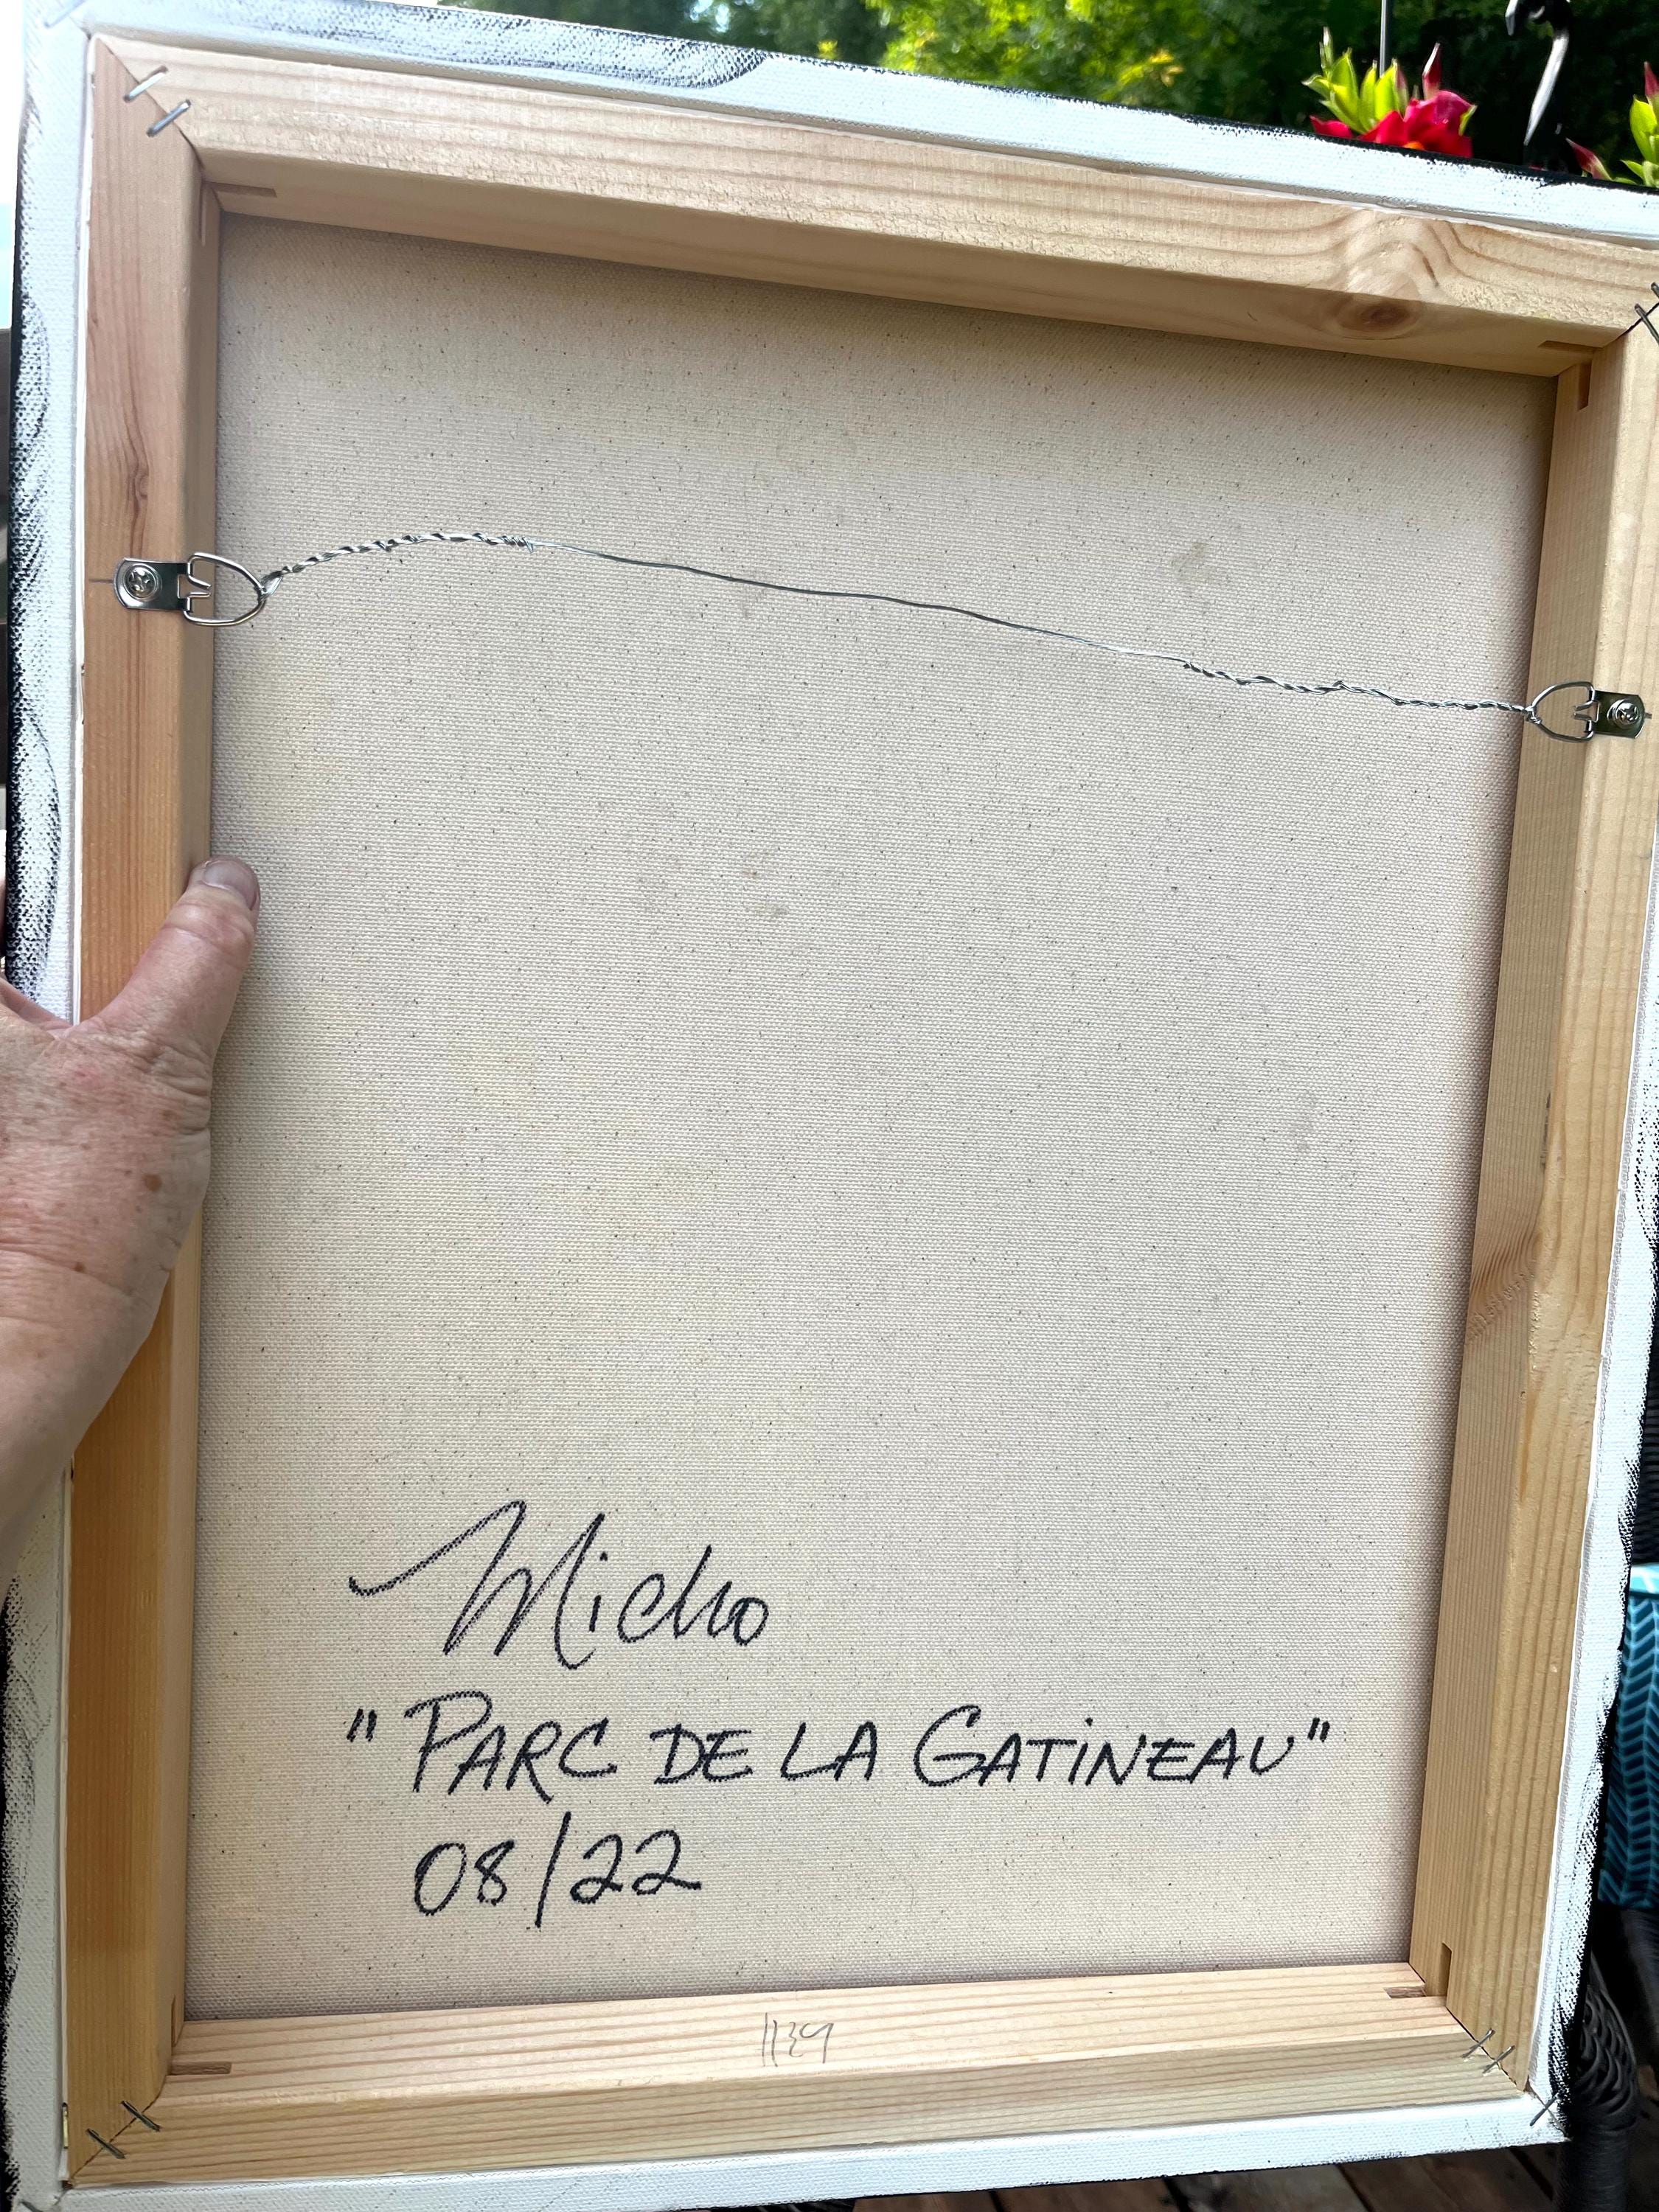 Micho
"PARC DE LA GATINEAU"
08/22
1139